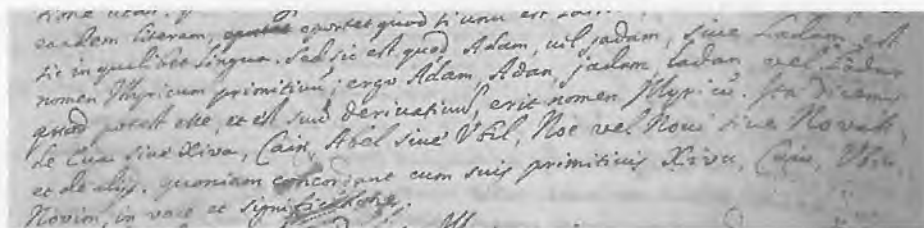 eandem literam, oportet quod si unu est
sic in qualibet lingua. Sed sic est quod Adam, vel jadam, sive Ladam, est
nomen Illyricum primitivũ; ergo Adam, Adan, jadam, Ladan vel
quod potest esse, et est suũ derivativũ, erit nomen Illyricũ. Ita dicemus
de Eva sive Xiva, Cain, Abel sive Vbil, Noe vel Novi sive Novak,
et de alijs. quoniam concordant cum suis primitivis Xiva, Cain, Vbil,
Novim, in voce et significatione.